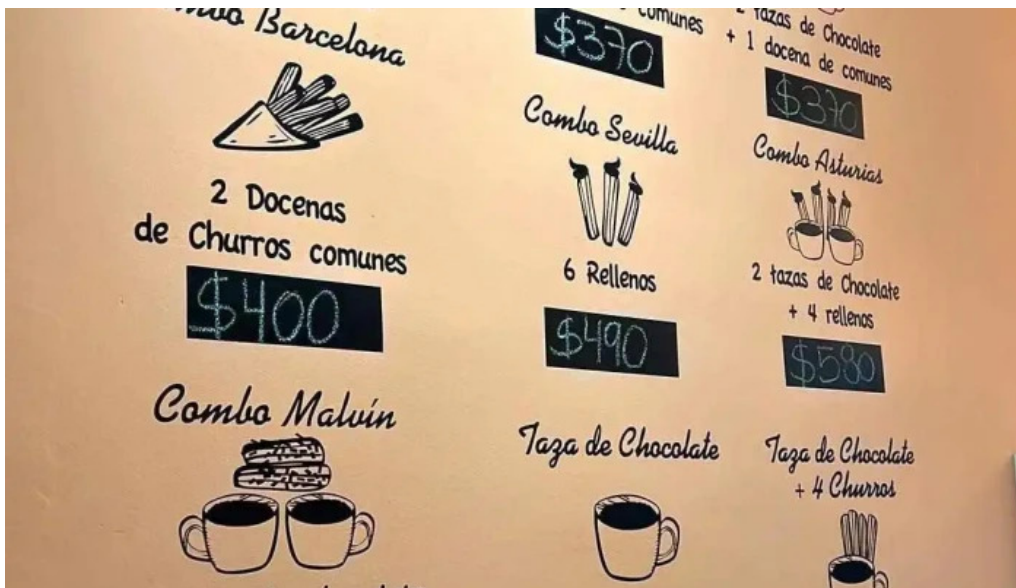 Combo Barcelona
2 Docenas
de Churros comunes
$400
Combo Malvín
comunes
$370
Combo Sevilla
6 Rellenos
$490
Taza de Chocolate
2 tazas de Chocolate
+ 1 docena de comunes
$370
Combo Asturias
2 tazas de Chocolate
+ 4 rellenos
$580
Taza de Chocolate
+ 4 Churros